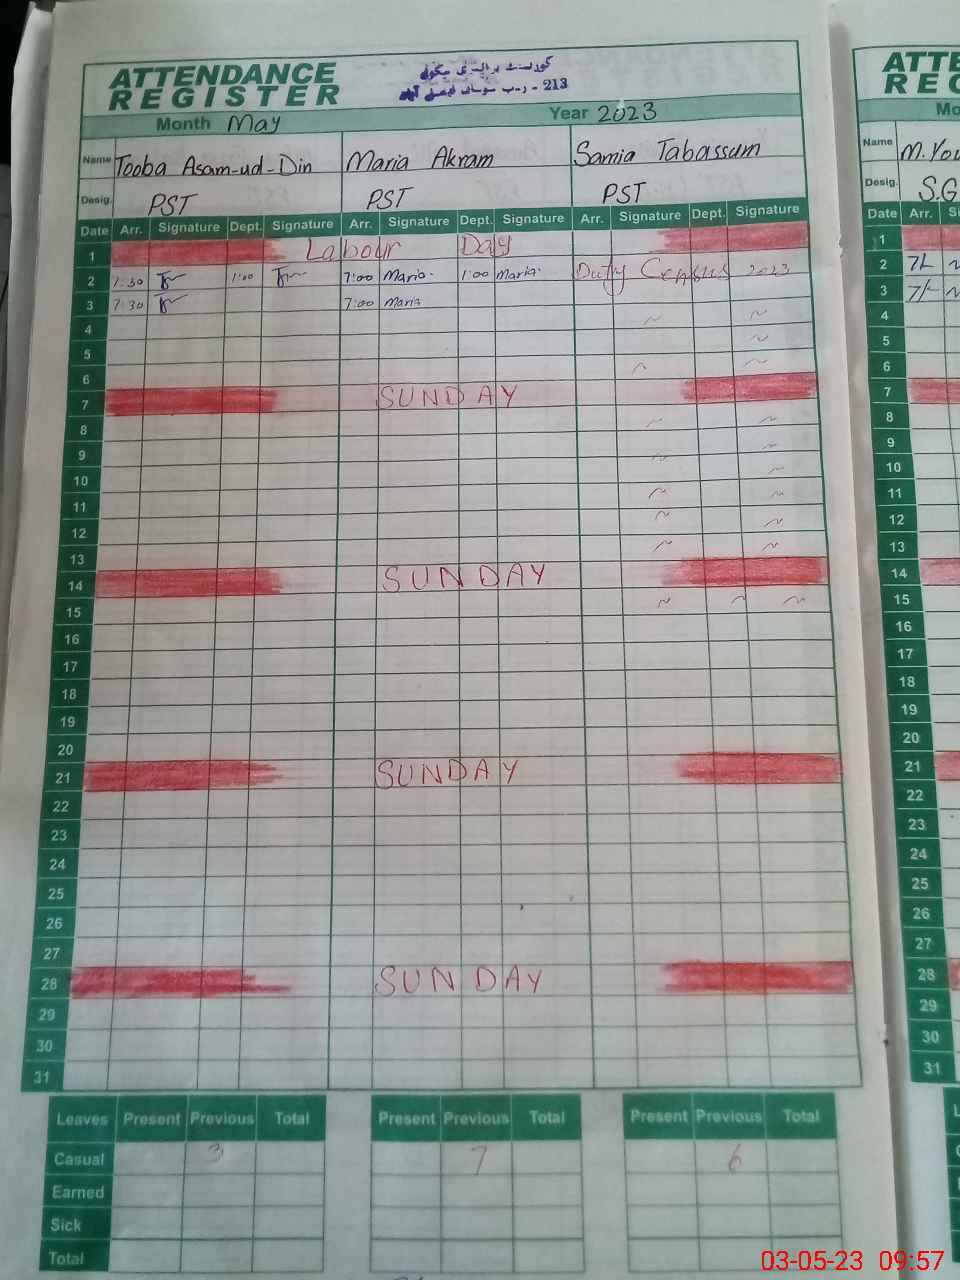 ATTENDANCE
REGISTER
گورنمنٹ پرائمری سکول
213 - ر۔ب فیصل آباد
Month May Year 2023
Name Tooba Asam-ud-Din Maria Akram Samia Tabassum
Desig. PST PST PST
Date Arr. Signature Dept. Signature Arr. Signature Dept. Signature Arr. Signature Dept. Signature
1 Labour Day
2 7:30 1:00 7:00 Maria 1:00 Maria Duty Census 2023
3 7:30 7:00 Maria
4
5
6
7 SUNDAY
8
9
10
11
12
13
14 SUNDAY
15
16
17
18
19
20
21 SUNDAY
22
23
24
25
26
27
28 SUNDAY
29
30
31
Leaves Present Previous Total Present Previous Total Present Previous Total
Casual 3 7 6
Earned
Sick
Total
ATTE
REG
Mo
Name M. You
Desig. S.G
Date Arr. Si
1
2 7/-
3 7/-
4
5
6
7
8
9
10
11
12
13
14
15
16
17
18
19
20
21
22
23
24
25
26
27
28
29
30
31
03-05-23 09:57